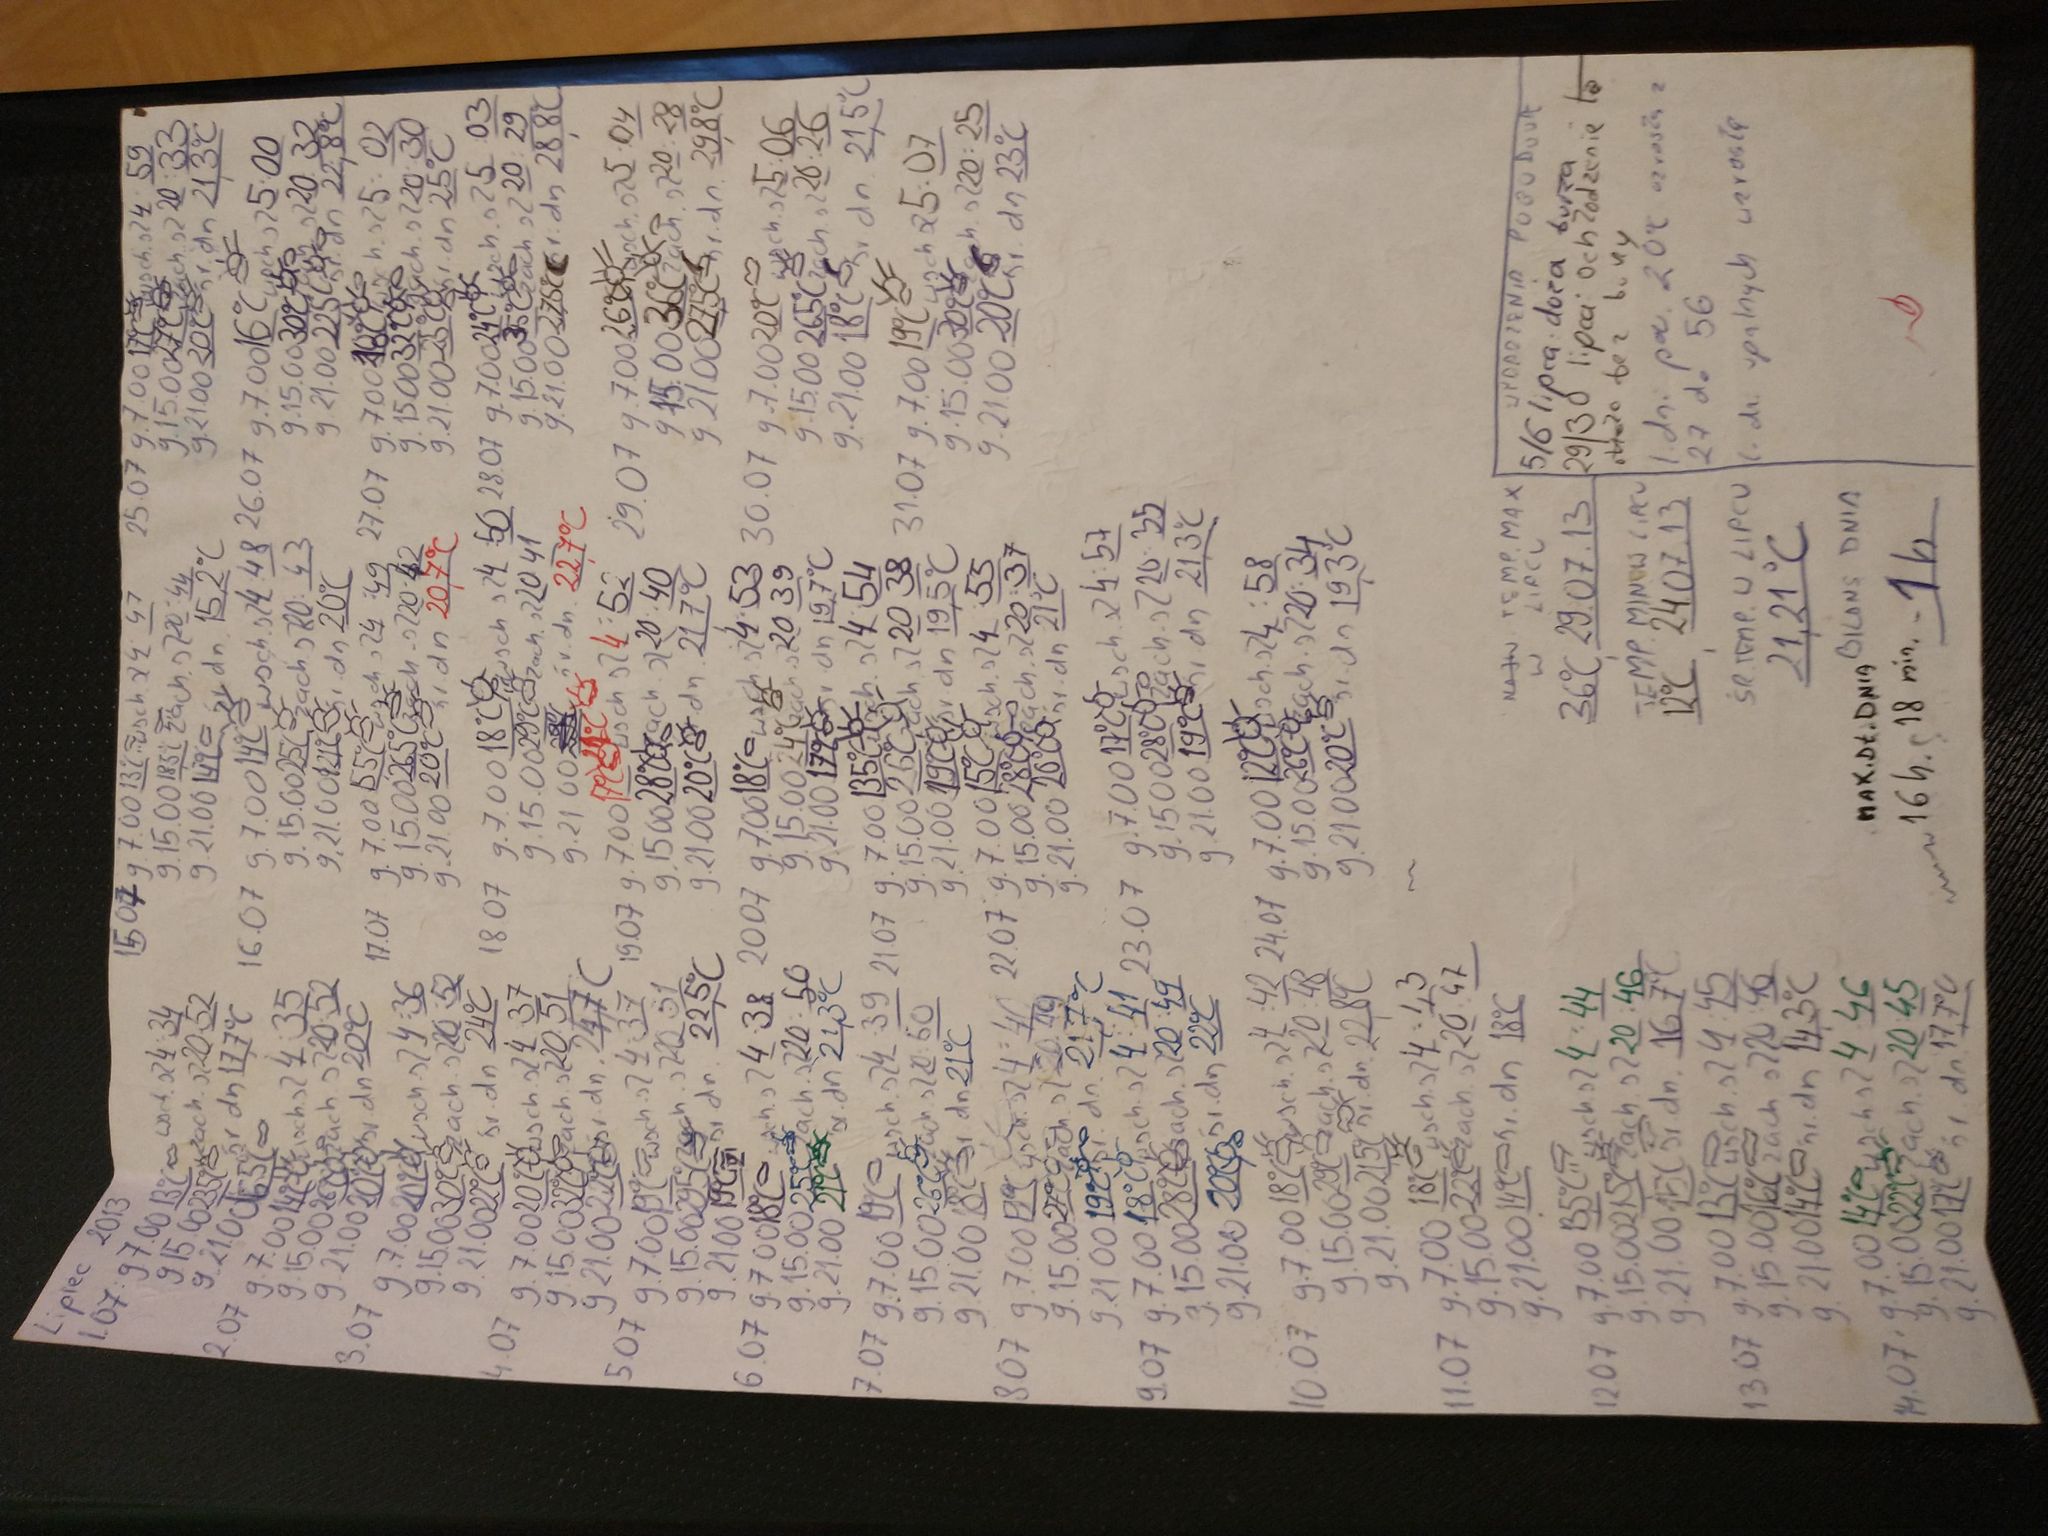 Lipiec 2013
1.07: g 7.00 13°C wsch. sł 4:34
g 15.00 23°C zach. sł 20:52
g. 21.00 śr dn 17,7°C
2.07 g. 7.00 14°C wsch. sł 4:35
g. 15.00 26°C zach. sł 20:52
g. 21.00 20°C śr. dn 20°C
3.07 g. 7.00 20°C wsch. sł 4:36
g. 15.00 30°C zach. sł 20:52
g. 21.00 22°C śr. dn 24°C
4.07 g. 7.00 20°C wsch. sł 4:37
g. 15.00 32°C zach. sł 20:51
g. 21.00 22°C śr. dn. 24,7°C
5.07 g. 7.00 19°C wsch. sł 4:37
g. 15.00 29,5°C zach. sł 20:51
g. 21.00 19°C śr. dn. 22,5°C
6.07 g. 7.00 18°C wsch. sł 4:38
g. 15.00 25°C zach. sł 20:50
g. 21.00 21°C śr. dn 21,3°C
7.07 g. 7.00 19°C wsch. sł 4:39
g. 15.00 26°C zach sł 20:50
g. 21.00 18°C śr dn. 21°C
8.07 g. 7.00 19°C wsch. sł 4:40
g. 15.00 27°C zach. sł 20:49
g. 21.00 19°C śr. dn. 21,7°C
9.07 g. 7.00 18°C wsch. sł 4:41
g. 15.00 28°C zach. sł 20:49
g. 21.00 20°C śr. dn 22°C
10.07 g. 7.00 18°C wsch. sł 4:42
g. 15.00 29°C zach. sł 20:48
g. 21.00 21,5°C śr. dn. 22,8°C
11.07 g. 7.00 18°C wsch. sł 4:43
g. 15.00 22°C zach. sł 20:47
g. 21.00 14°C śr. dn 18°C
12.07 g. 7.00 13,5°C wsch. sł 4:44
g. 15.00 21,5°C zach. sł 20:46
g. 21.00 15°C śr. dn. 16,7°C
13.07 g. 7.00 13°C wsch. sł 4 45
g. 15.00 16°C zach sł 20:46
g. 21.00 14°C śr. dn 14,3°C
14.07. g. 7.00 14°C wsch. sł 4 46
g. 15.00 22°C zach. sł 20 45
g. 21.00 17°C śr. dn. 17,7°C
15.07 g. 7.00 13°C wsch. sł 4:47
g. 15.00 18,5°C zach. sł 20:44
g. 21.00 14°C śr dn. 15,2°C
16.07 g. 7.00 14°C wsch. sł 4 48
g. 15.00 25°C zach. sł 20:43
g. 21.00 21°C śr. dn 20°C
17.07 g. 7.00 15,5°C wsch. sł 4:49
g. 15.00 26,5°C zach. sł 20:42
g. 21.00 20°C śr. dn 20,7°C
18.07 g. 7.00 18°C wsch sł 4 50
g. 15.00 29°C zach. sł 20 41
g. 21 00 śr. dn. 22,7°C
19.07 g. 7.00 17°C wsch sł 4:52
g. 15.00 28°C zach. sł 20 40
g. 21.00 20°C śr dn. 21 7°C
20.07 g. 7.00 18°C wsch. sł 4:53
g. 15.00 24°C zach. sł 20 39
g. 21.00 17°C śr. dn 19,7°C
21.07 g. 7.00 13,5°C wsch. sł 4:54
g. 15.00 26°C zach. sł 20 38
g. 21.00 19°C śr. dn 19,5°C
22.07 g. 7.00 15°C wsch. sł 4:55
g. 15.00 28°C zach. sł 20:37
g. 21.00 20°C śr. dn. 21°C
23.07 g. 7.00 17°C wsch. sł 4:57
g. 15.00 28°C zach. sł 20:35
g. 21.00 19°C śr. dn 21,3°C
24.07 g. 7.00 12°C wsch. sł 4:58
g. 15.00 26°C zach. sł 20:34
g. 21.00 20°C śr. dn 19,3°C
25.07 g. 7.00 17°C wsch. sł 4:59
g. 15.00 27°C zach. sł 20:33
g. 21.00 20°C śr. dn 21,3°C
26.07 g. 7.00 16°C wsch. sł 5:00
g. 15.00 30°C zach. sł 20:32
g. 21.00 22,5°C śr. dn 22,8°C
27.07 g. 7.00 wsch. sł 5:02
g. 15.00 32°C zach. sł 20:30
g. 21.00 25°C śr. dn 25°C
28.07 g. 7.00 24°C wsch. sł 5 03
g. 15.00 35°C zach. sł 20:29
g. 21.00 27,5°C śr. dn 28,8°C
29.07 g. 7.00 26°C wsch. sł 5:04
g. 15.00 36°C zach. sł 20:28
g. 21.00 27,5°C śr. dn. 29,8°C
30.07 g. 7.00 20°C wsch. sł 5:06
g. 15.00 26,5°C zach. sł 20:26
g. 21.00 18°C śr dn. 21,5°C
31.07 g. 7.00 19°C wsch sł 5:07
g. 15.00 30°C zach. sł 20:25
g. 21.00 20°C śr. dn 23°C
TEMP. MAX
W LIPCU
36°C 29.07.13
TEMP. MIN W LIPCU
12°C 24.07.13
ŚR. TEMP. W LIPCU
21,21°C
MAX. DŁ. DNIA BILANS DNIA
16h. 18 min. -1h
5/6 lipca: duża burza
29/30 lipca ochłodzenie
bez burzy
l. dni pow. 20°C wzrosła z
27 do 56
l. dn. upalnych wzrosła